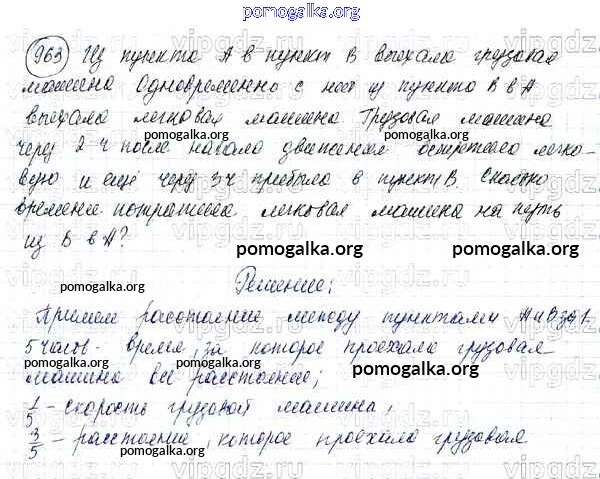 pomogalka.org
963 Из пункта А в пункт В выехала грузовая
машина. Одновременно с ней из пункта В в А
выехала легковая машина. Грузовая машина
pomogalka.org pomogalka.org
через 2 ч после начала движения встретила легко-
вую и ещё через 3 ч прибыла в пункт В. Сколько
времени потратила легковая машина на путь
из В в А?
pomogalka.org pomogalka.org
Решение:
pomogalka.org
Примем расстояние между пунктами А и В за 1.
5 часов - время, за которое проехала грузовая
pomogalka.org pomogalka.org
машина всё расстояние;
1/5 - скорость грузовой машины,
pomogalka.org pomogalka.org
3/5 - расстояние, которое проехала грузовая
vipgdz.ru vipgdz.ru vipgdz.ru
pomogalka.org